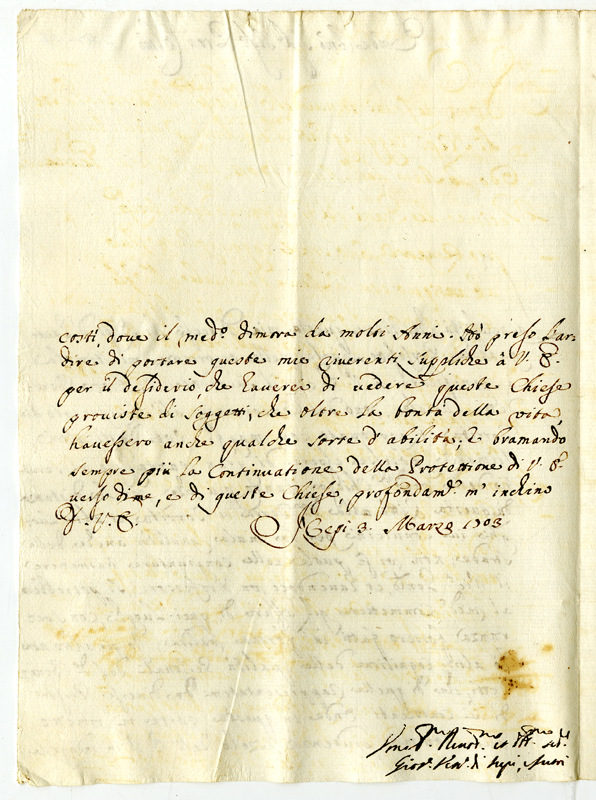 costì, dove il med.º dimora da molti Anni. Hò preso l'ar=
dire di portare queste mie riverenti suppliche à V. E.
per il desiderio che haverei di vedere queste Chiese
proviste di soggetti, che oltre la bontà della vita,
havessero anche qualche sorte d'abilità; E bramando
sempre più la Continuatione della Protettione di V. E.
verso di me, e di queste Chiese, profondam.te m'inchino
D. V. E.
Nepi 3. Marzo 1703